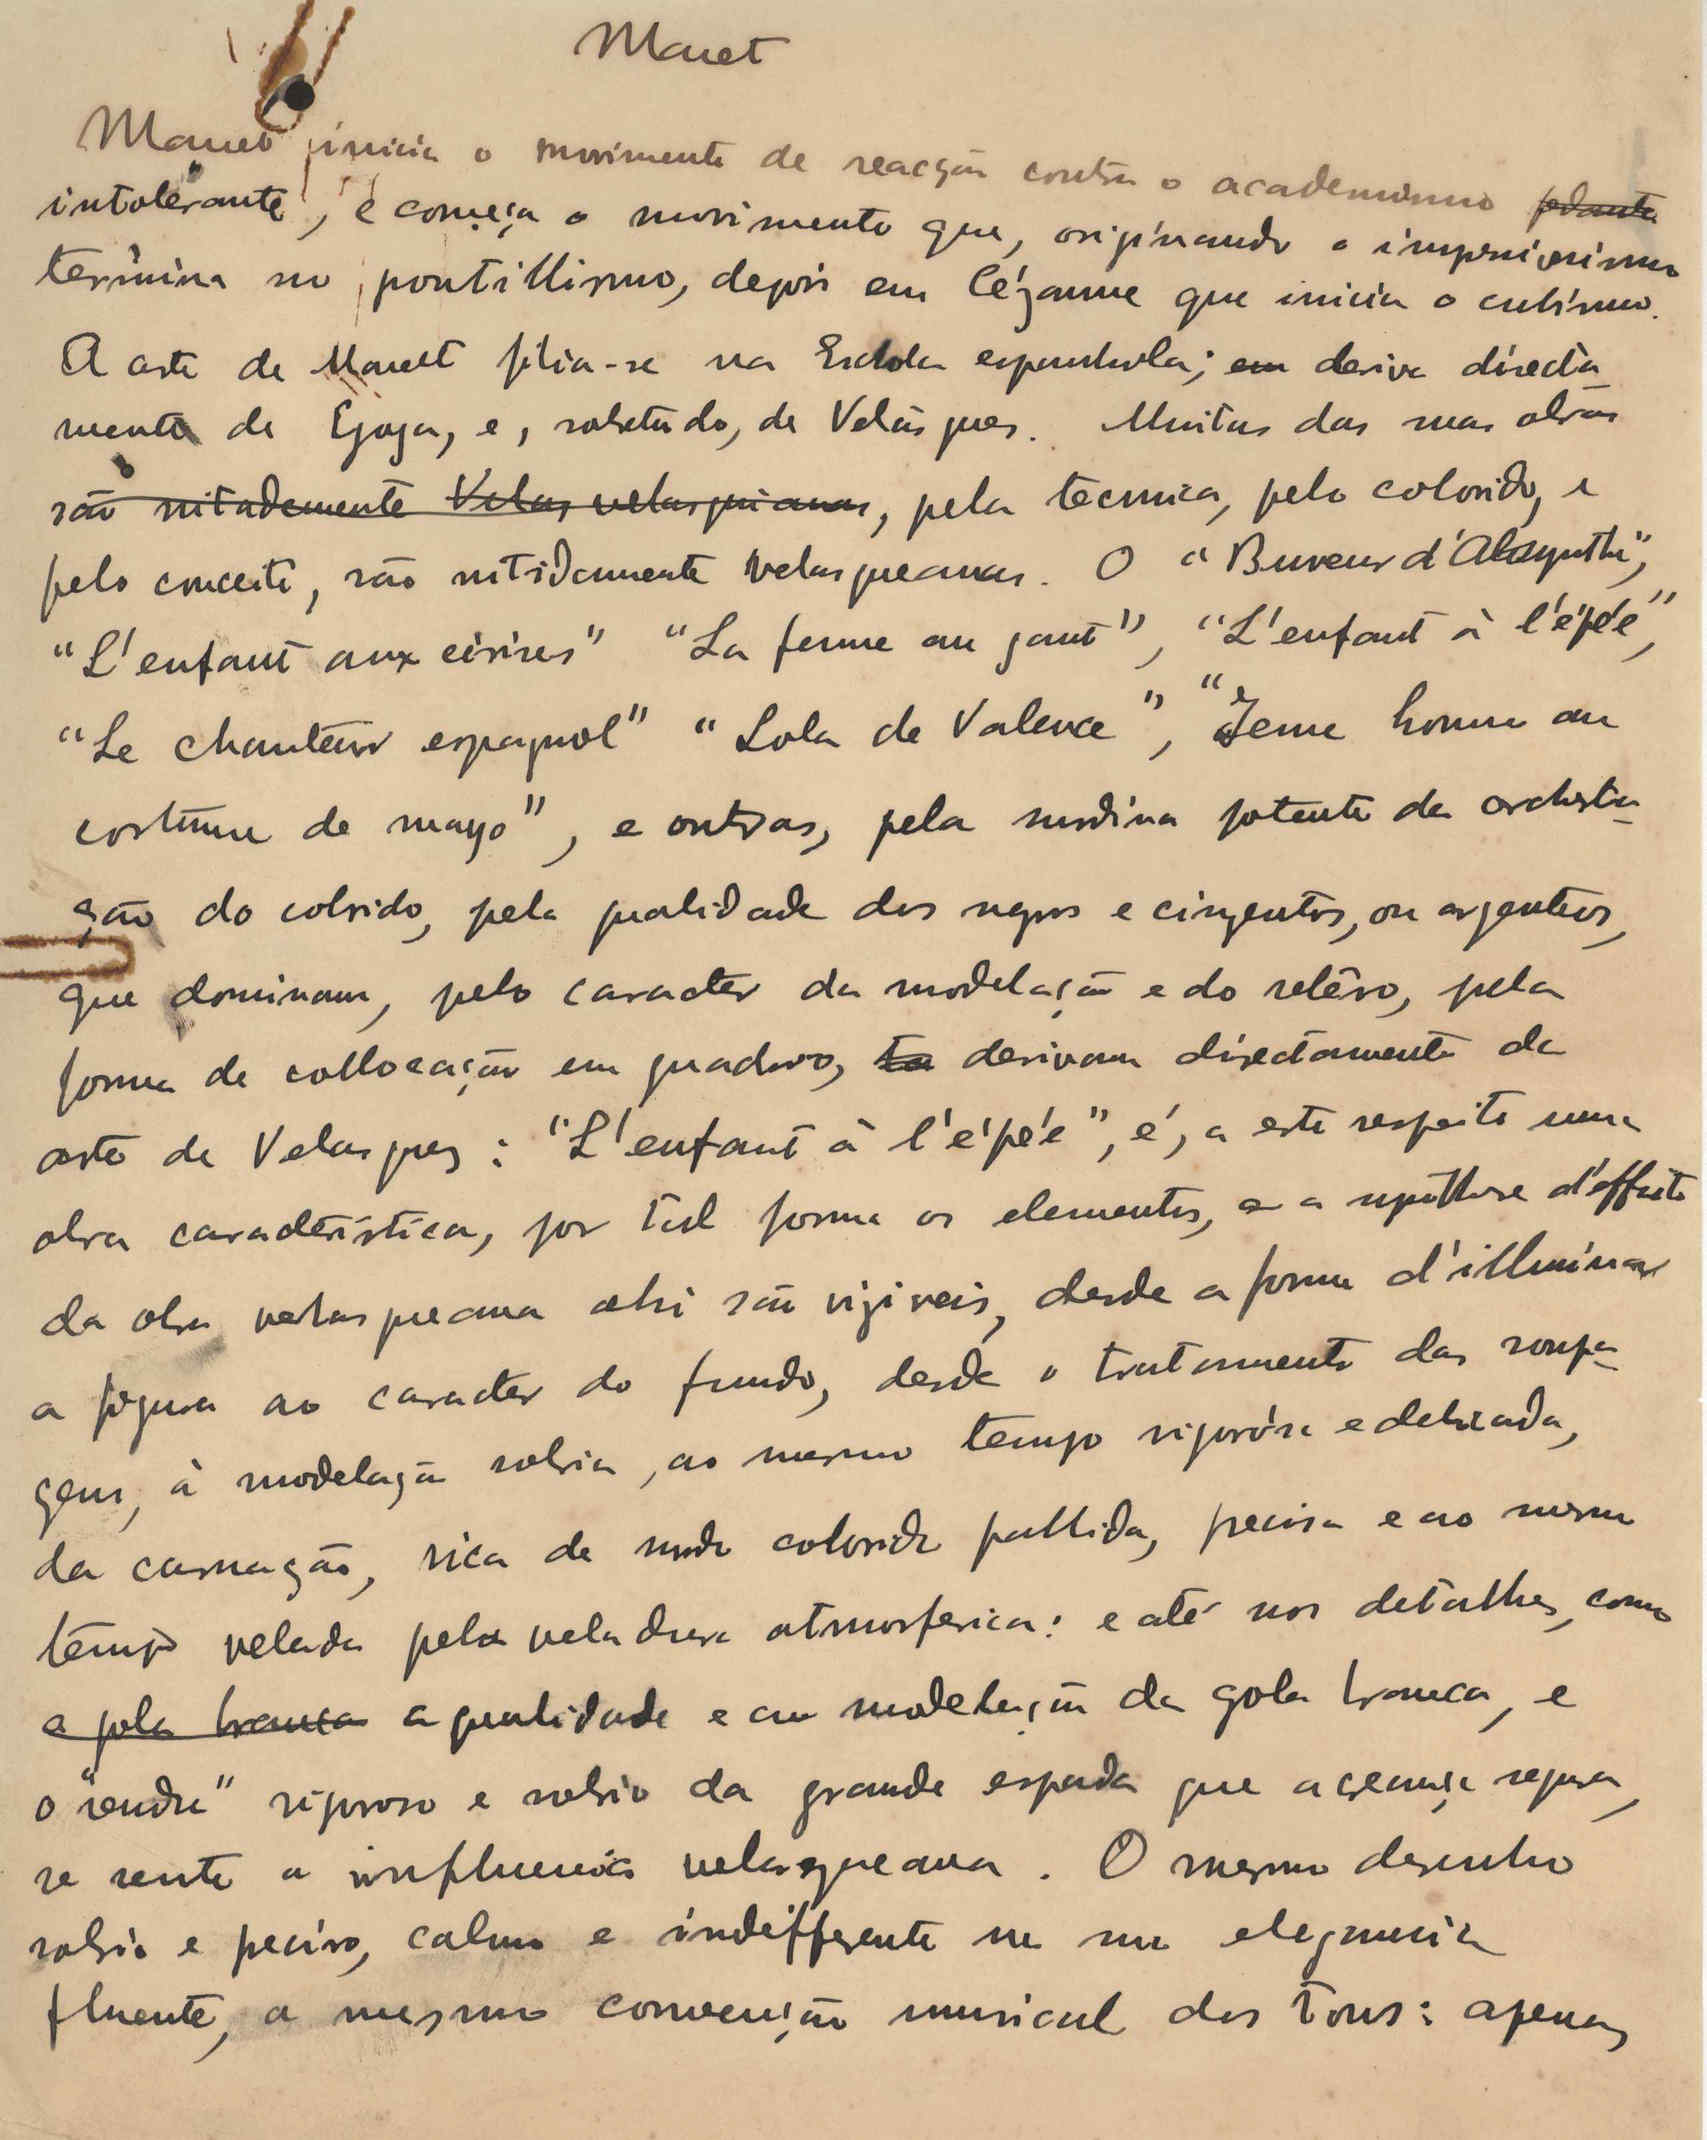 Manet
Manet inicia o movimento de reacção contra o academismo pedante
intolerante, e começa o movimento que, originando o impressionismo
termina no pontillismo, depois em Cézanne que inicia o cubismo.
A arte de Manet filia-se na Escola espanhola; em deriva directa-
mente de Goya, e, sobretudo, de Velásques. Muitas das suas obras
são nitademente Velas velasquianas, pela tecnica, pelo colorido, e
pelo conceito, são nitidamente velasqueanas. O "Buveur d'Absynthe",
"L'enfant aux cérises" "La femme au gant", "L'enfant à l'épée",
"Le chanteur espagnol" "Lola de Valence", "Jeune homme au
costume de mayo", e outras, pela surdina potente da orchestra-
ção do colorido, pela qualidade dos negros e cinzentos, ou argenteos,
que dominam, pelo caracter da modelação e do relêvo, pela
forma de collocação em quadro, derivam directamente da
arte de Velasquez: "L'enfant à l'épée", é, a este respeito uma
obra característica, por tal forma os elementos, e a d'effeito
da obra velasqueana ahi são viziveis, desde a forma d'illuminar
a figura ao caracter do fundo, desde o tratamento das roupa-
gens, à modelação sobria, ao mesmo tempo vigorósa e delicada,
da carnação, rica de modo colorido pallida, precisa e ao mesmo
tempo velada pela veladura atmosferica: e até nos detalhes, como
a gola branca a qualidade e a modelação da gola branca, e
o "rendu" vigoroso e sobrio da grande espada que a creança segura,
se sente a influencia velasqueana. O mesmo desenho
sobrio e preciso, calmo e indifferente na sua elegancia
fluente, a mesma convenção musical dos tons: apenas